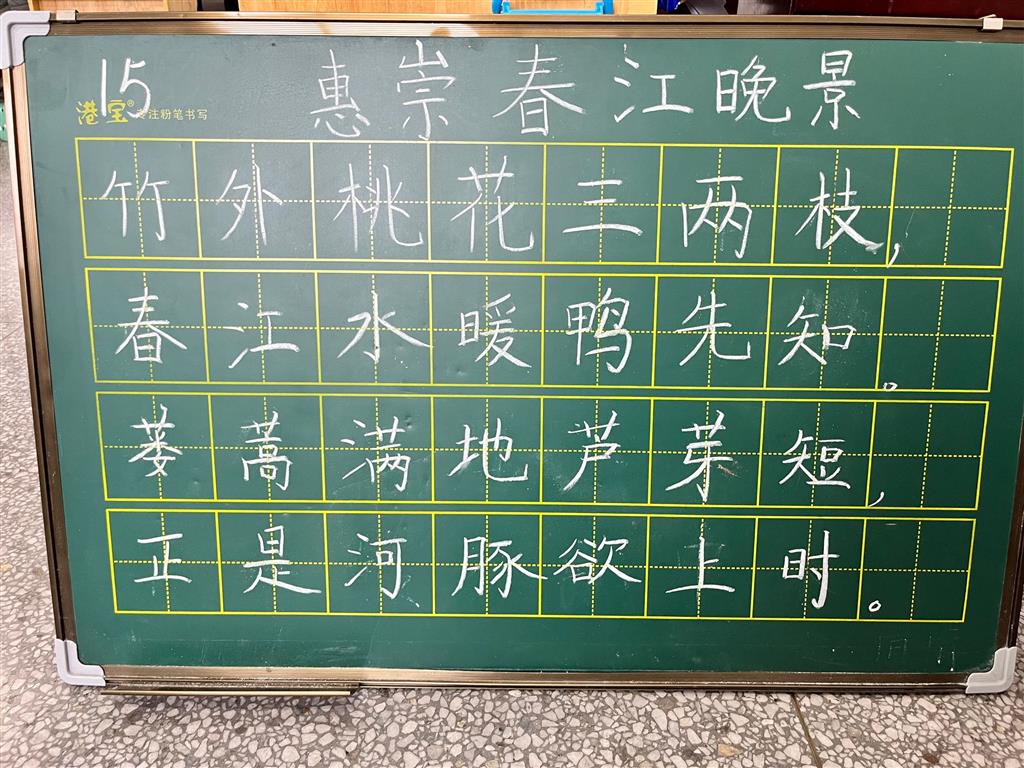 15 惠崇春江晚景
港宝® 专注粉笔书写
竹外桃花三两枝,
春江水暖鸭先知。
蒌蒿满地芦芽短,
正是河豚欲上时。